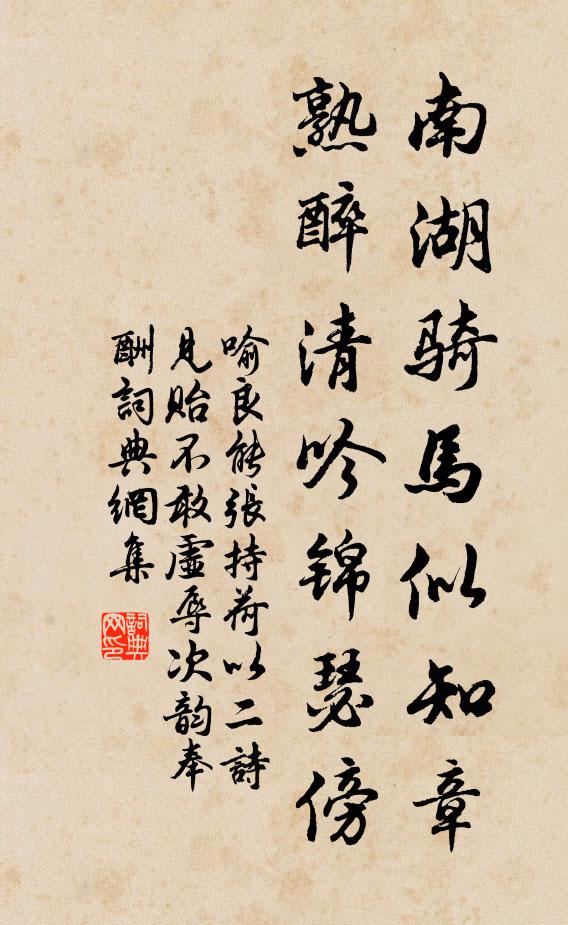 南湖騎馬似知章
熟醉清吟錦瑟傍
喻良能張持荷以二詩
見貽不敢虛辱次韵奉
酬詞典網集
詞典
网印